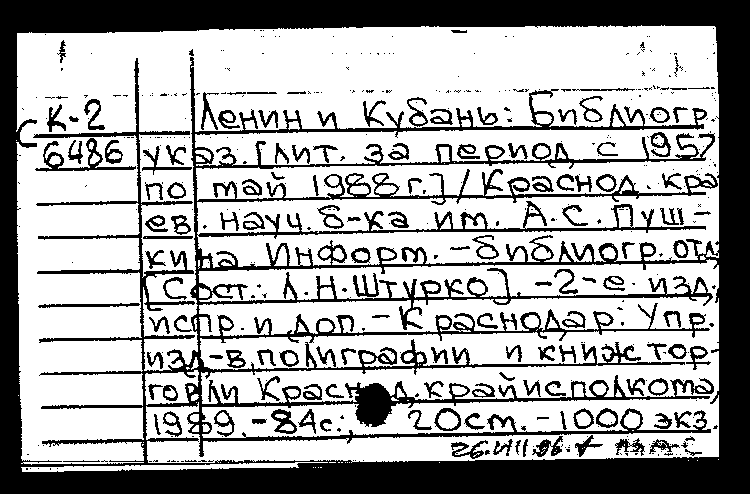 К-2 Ленин и Кубань: Библиогр.
С 6486 указ. [лит. за период с 1957
по май 1988 г.] / Краснод. кра
ев. науч. б-ка им. А.С. Пуш-
кина. Информ.-библиогр. отд;
[Сост.: Л.Н. Штурко]. -2-е изд.,
испр. и доп. - Краснодар: Упр.
изд-в, полиграфии и книж тор-
говли Краснод. крайисполкома,
1989. -84с.; 20см. -1000 экз.
26.VIII.96.